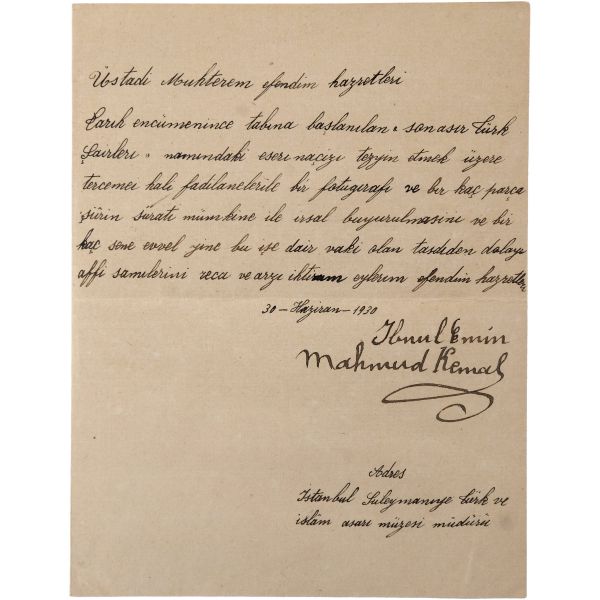 Üstadi Muhterem efendim hazretleri
Tarih encümenince tabına başlanılan "son asır Türk
Şairleri" namındaki eseri naçizi tezyin etmek üzere
tercemei hali fadılanelerile bir fotugirafi ve bir kaç parça
şiirin sürati mümkine ile irsal buyurulmasını ve bir
kaç sene evvel yine bu işe dair vaki olan tasdiden dolayı
affi samilerini reca ve arzı ihtiram eylerim efendim hazretleri
30 - Haziran - 1930
Ibnul Emin
Mahmud Kemal
Adres
İstanbul Suleymanıye Türk ve
islâm asarı müzesi müdürü